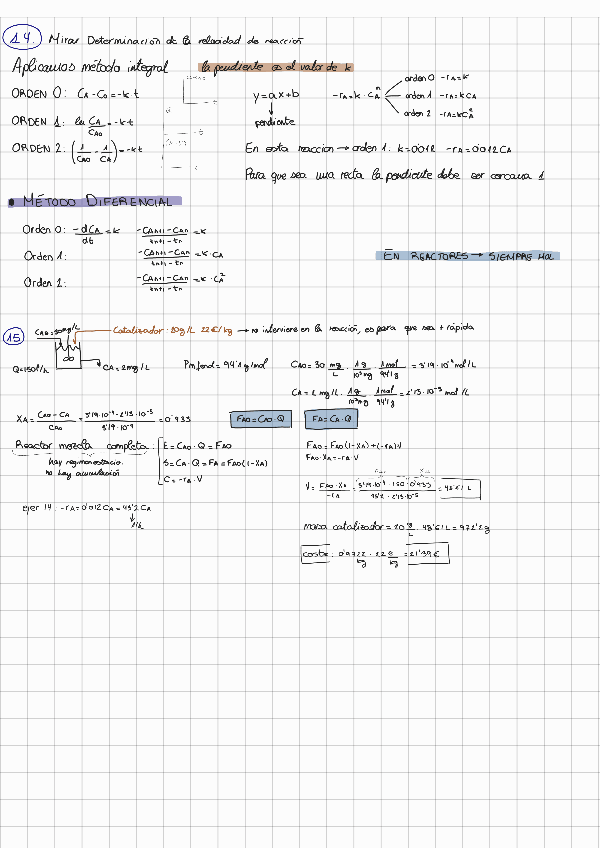 14. Mirar Determinación de la velocidad de reacción
Aplicamos método integral la pendiente es el valor de k
ORDEN 0: CA - C0 = -kt
y = ax + b
pendiente
-rA = k · CA^n
orden 0 -rA = k
orden 1 -rA = kCA
orden 2 -rA = kCA²
ORDEN 1: ln CA/CA0 = -kt
ORDEN 2: (1/CA0 - 1/CA) = -kt
En esta reacción → orden 1. k = 0'012 -rA = 0'012CA
Para que sea una recta la pendiente debe ser cercana 1
• MÉTODO DIFERENCIAL
Orden 0: -dCA/dt = k -CAn+1 - CAn/tn+1 - tn = k
Orden 1: -CAn+1 - CAn/tn+1 - tn = k · CA
Orden 2: -CAn+1 - CAn/tn+1 - tn = k · CA²
EN REACTORES → SIEMPRE MOL
15 CA0 = 30mg/L
Catalizador · 20g/L 22€/kg → no interviene en la reacción, es para que sea + rápida
Q = 150 l/h
CA = 2mg/L
Pm fenol = 94'1 g/mol
CA0 = 30 mg/L · 1g/10³mg · 1mol/94'1g = 3'19·10⁻⁴ mol/L
CA = 2 mg/L · 1g/10³mg · 1mol/94'1g = 2'13·10⁻⁵ mol/L
XA = CA0 - CA/CA0 = 3'19·10⁻⁴ - 2'13·10⁻⁵/3'19·10⁻⁴ = 0'933
FA0 = CA0 · Q
FA = CA · Q
Reactor mezcla completa:
hay regimen estacio.
no hay acumulación
E = CA0 · Q = FA0
S = CA · Q = FA = FA0(1 - XA)
C = -rA · V
FA0 = FA0(1 - XA) + (-rA)V
FA0 · XA = -rA · V
V = FA0 · XA/-rA = 3'19·10⁻⁴ · 150 · 0'933/43'2 · 2'13·10⁻⁵ = 48'61 L
ejer 14: -rA = 0'012CA = 43'2CA
1/h
masa catalizador = 20 g/L · 48'61L = 972'2g
coste: 0'9722 kg · 22 €/kg = 21'39€